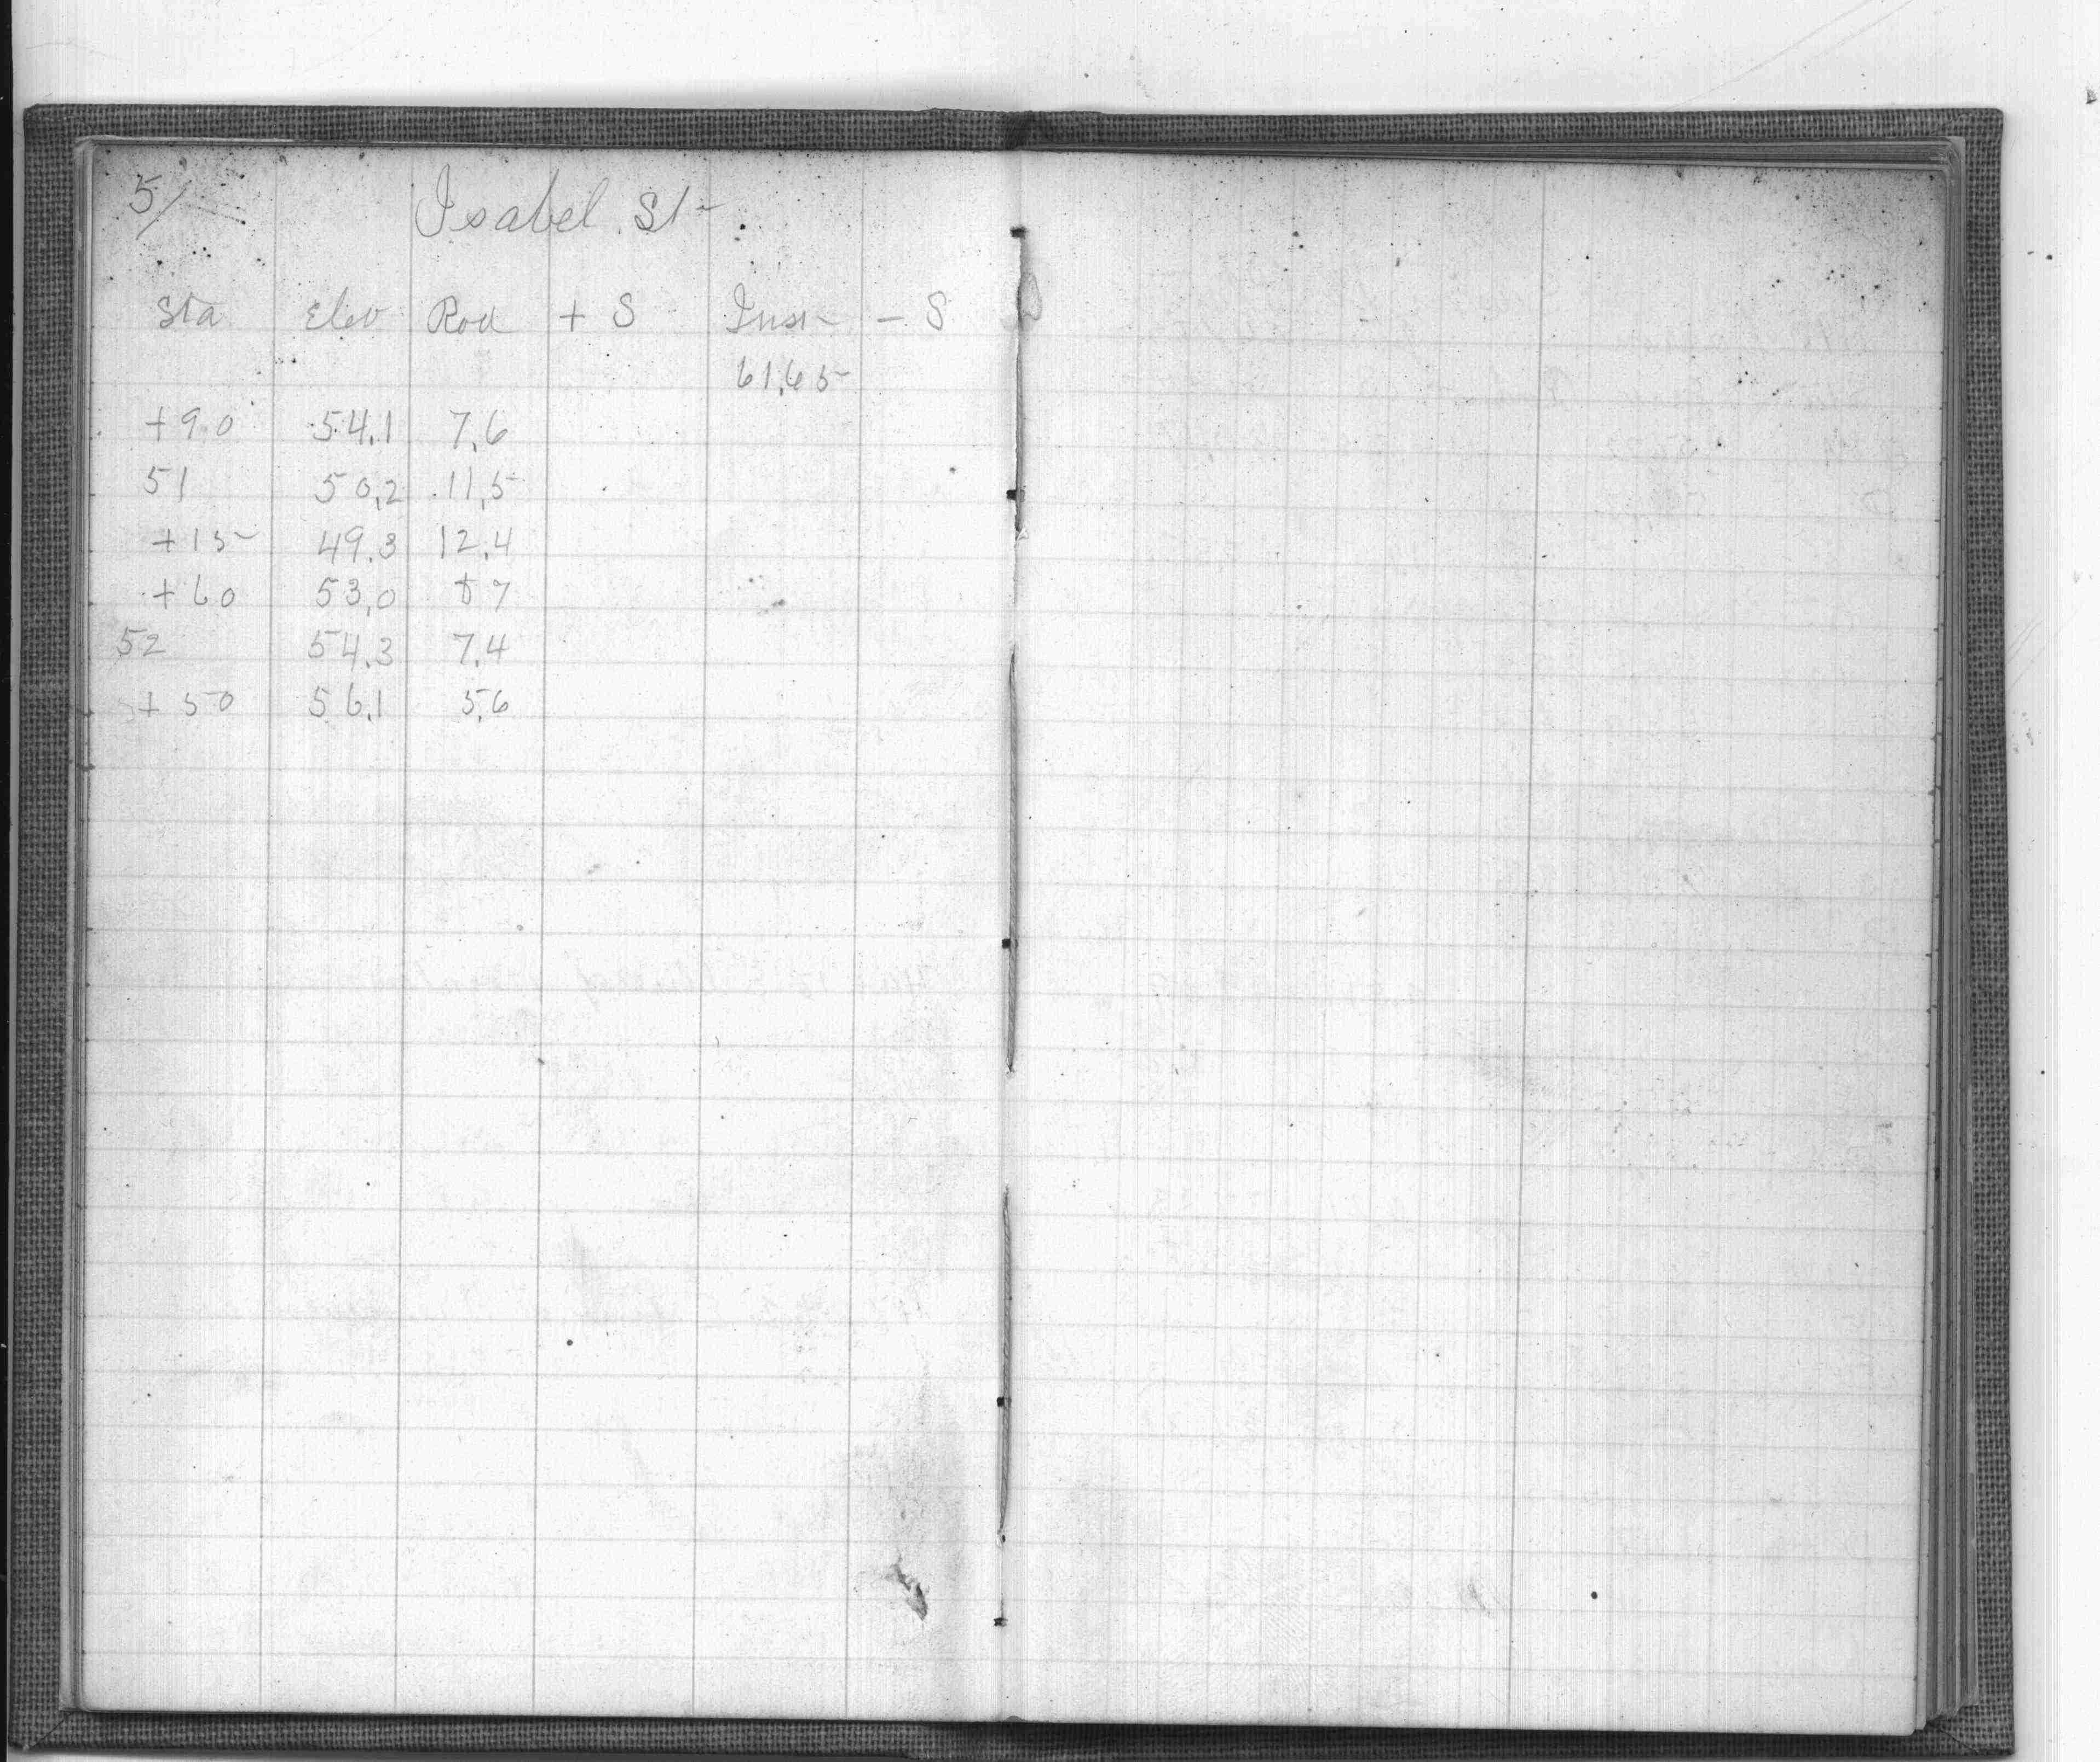 51
Isabel St.
Sta Elev Rod + S Inst - S
61.65
+90 54.1 7.6
51 50.2 11.5
+15 49.3 12.4
+60 53.0 8.7
52 54.3 7.4
+50 56.1 5.6